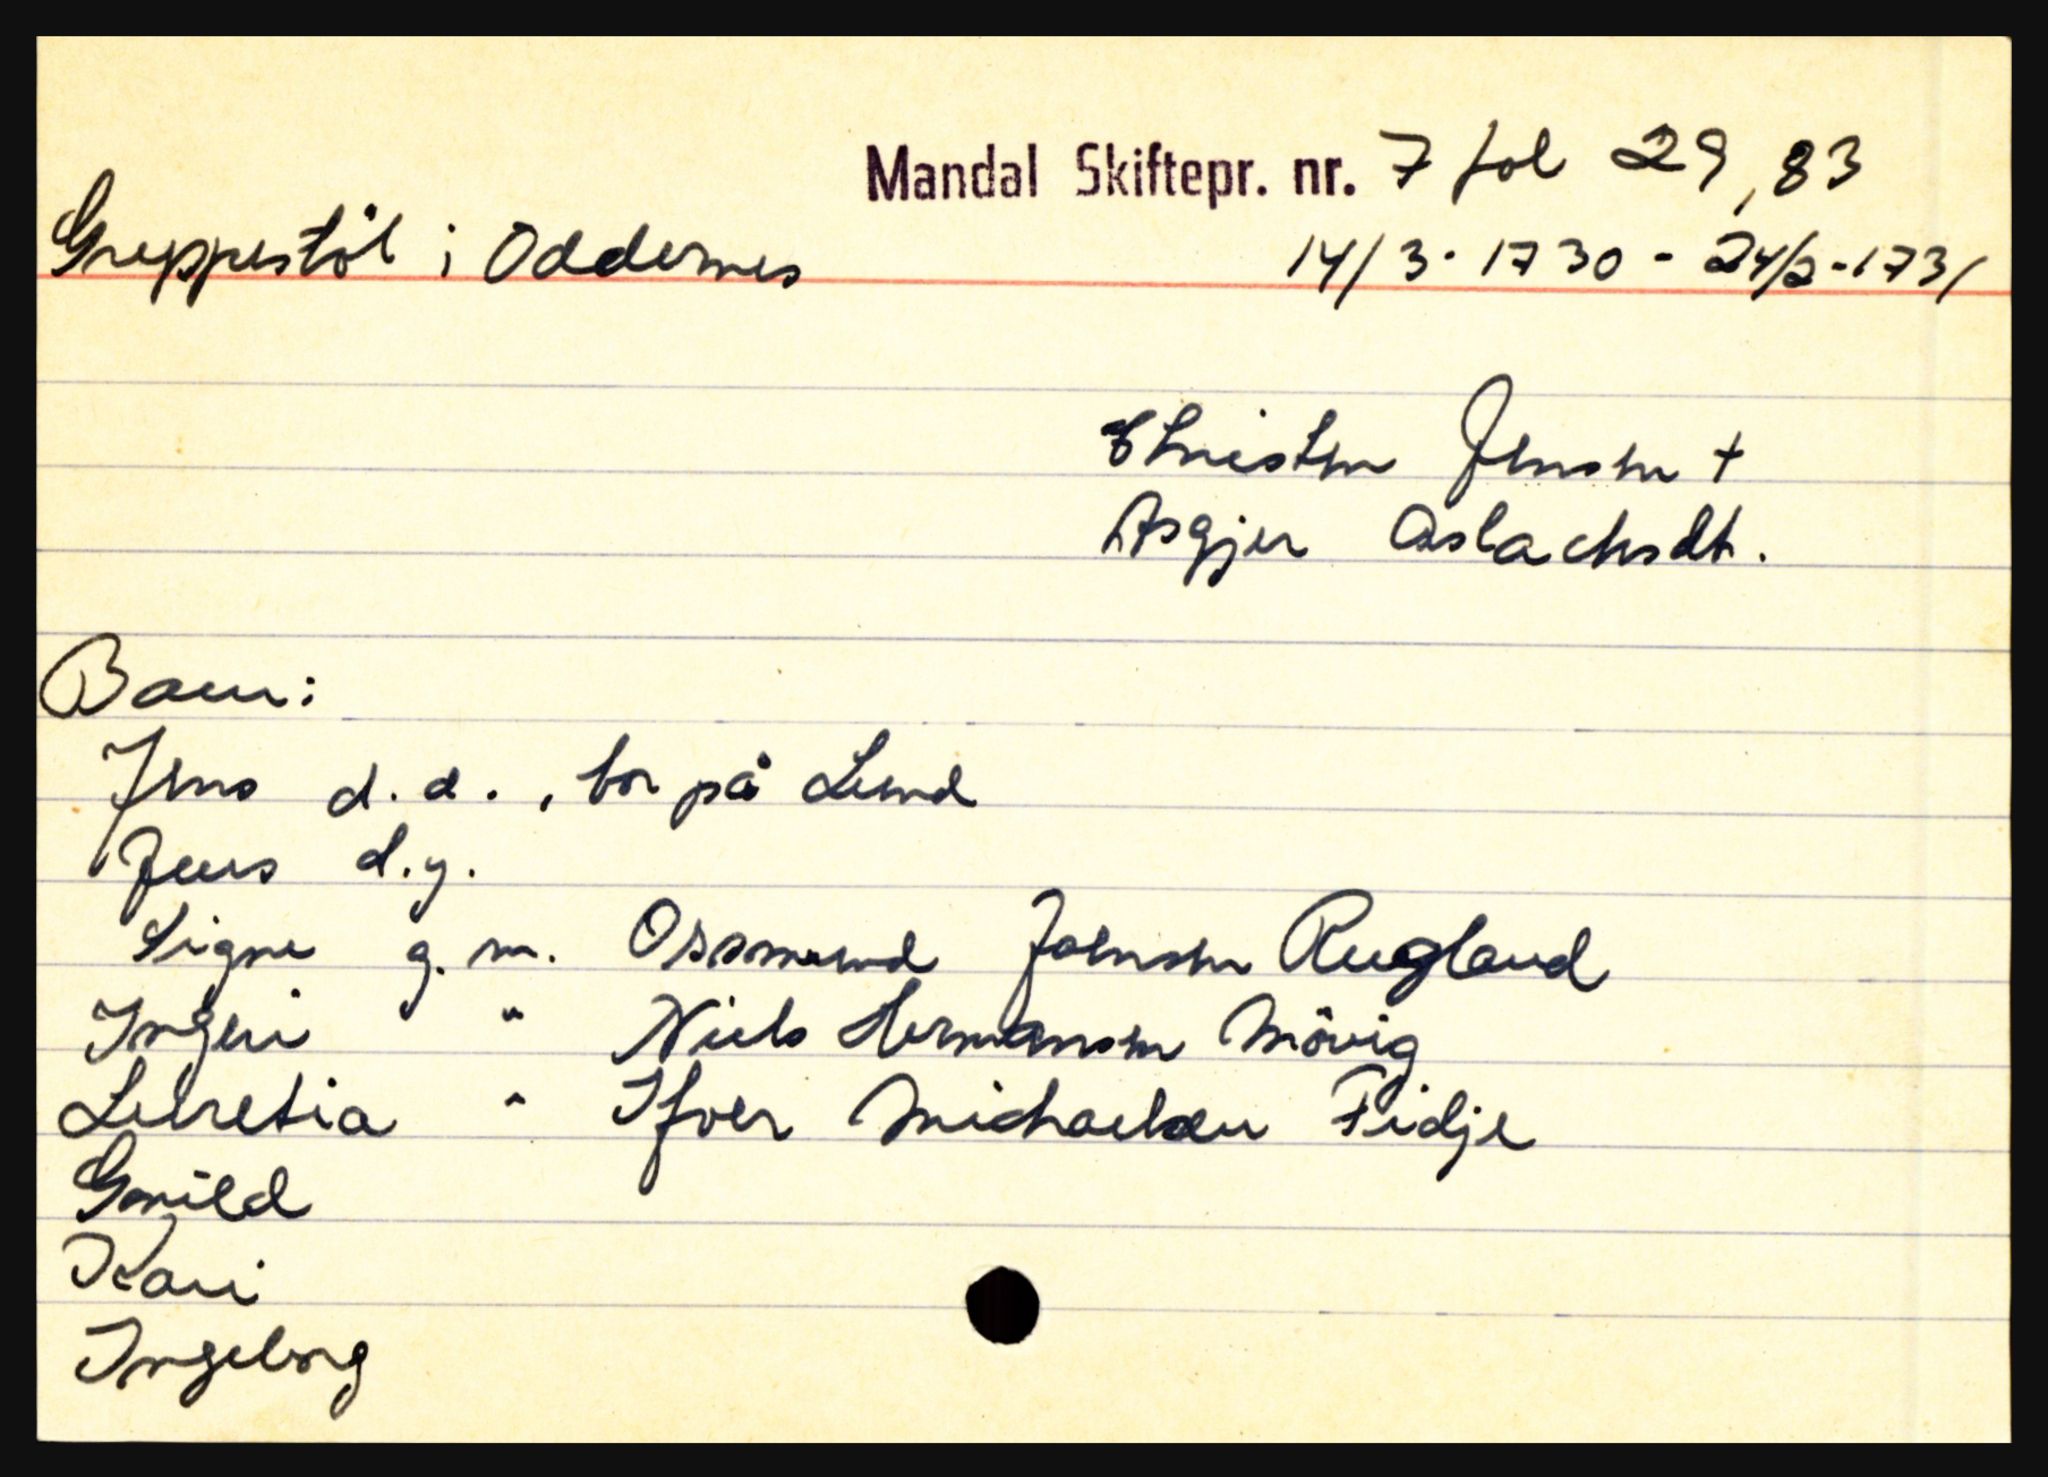 Mandal Skiftepr. nr. 7 fol 29, 83
Greppestöl i Oddernes 14/3-1730 - 24/2-1731
Christen Jensen +
Asgjer Aslachsdt.
Barn:
Jens d.e., bor på Lund
Jens d.y.
Signe g.m. Ossmund Johnsen Rugland
Ingeri " Niels Hermansen Mövig
Lucretia " Ifver Michaelsen Fidje
Gunild
Kari
Ingeborg